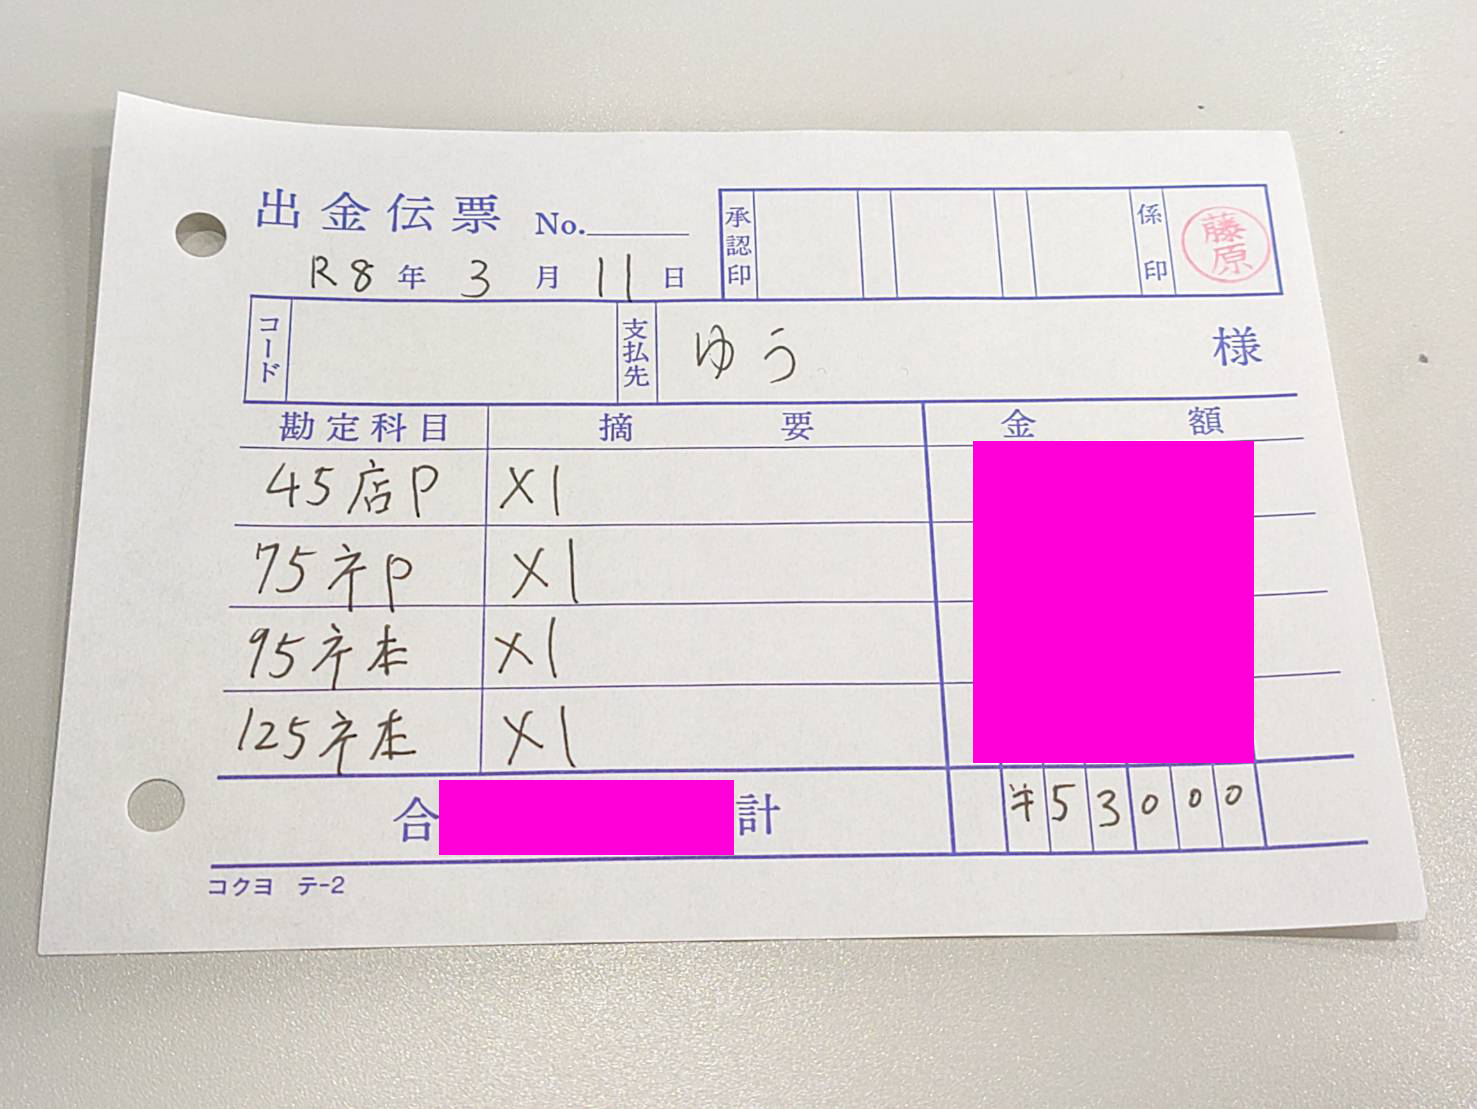 出金伝票 No.
承認印
係印
藤原
R8年3月11日
コード
支払先 ゆう 様
勘定科目 摘要 金額
45店P ×1
75ネP ×1
95ネ本 ×1
125ネ本 ×1
合計 ¥53000
コクヨ テ-2